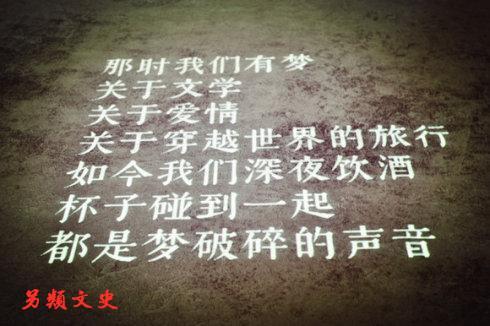 那时我们有梦
关于文学
关于爱情
关于穿越世界的旅行
如今我们深夜饮酒
杯子碰到一起
都是梦破碎的声音
另類文史